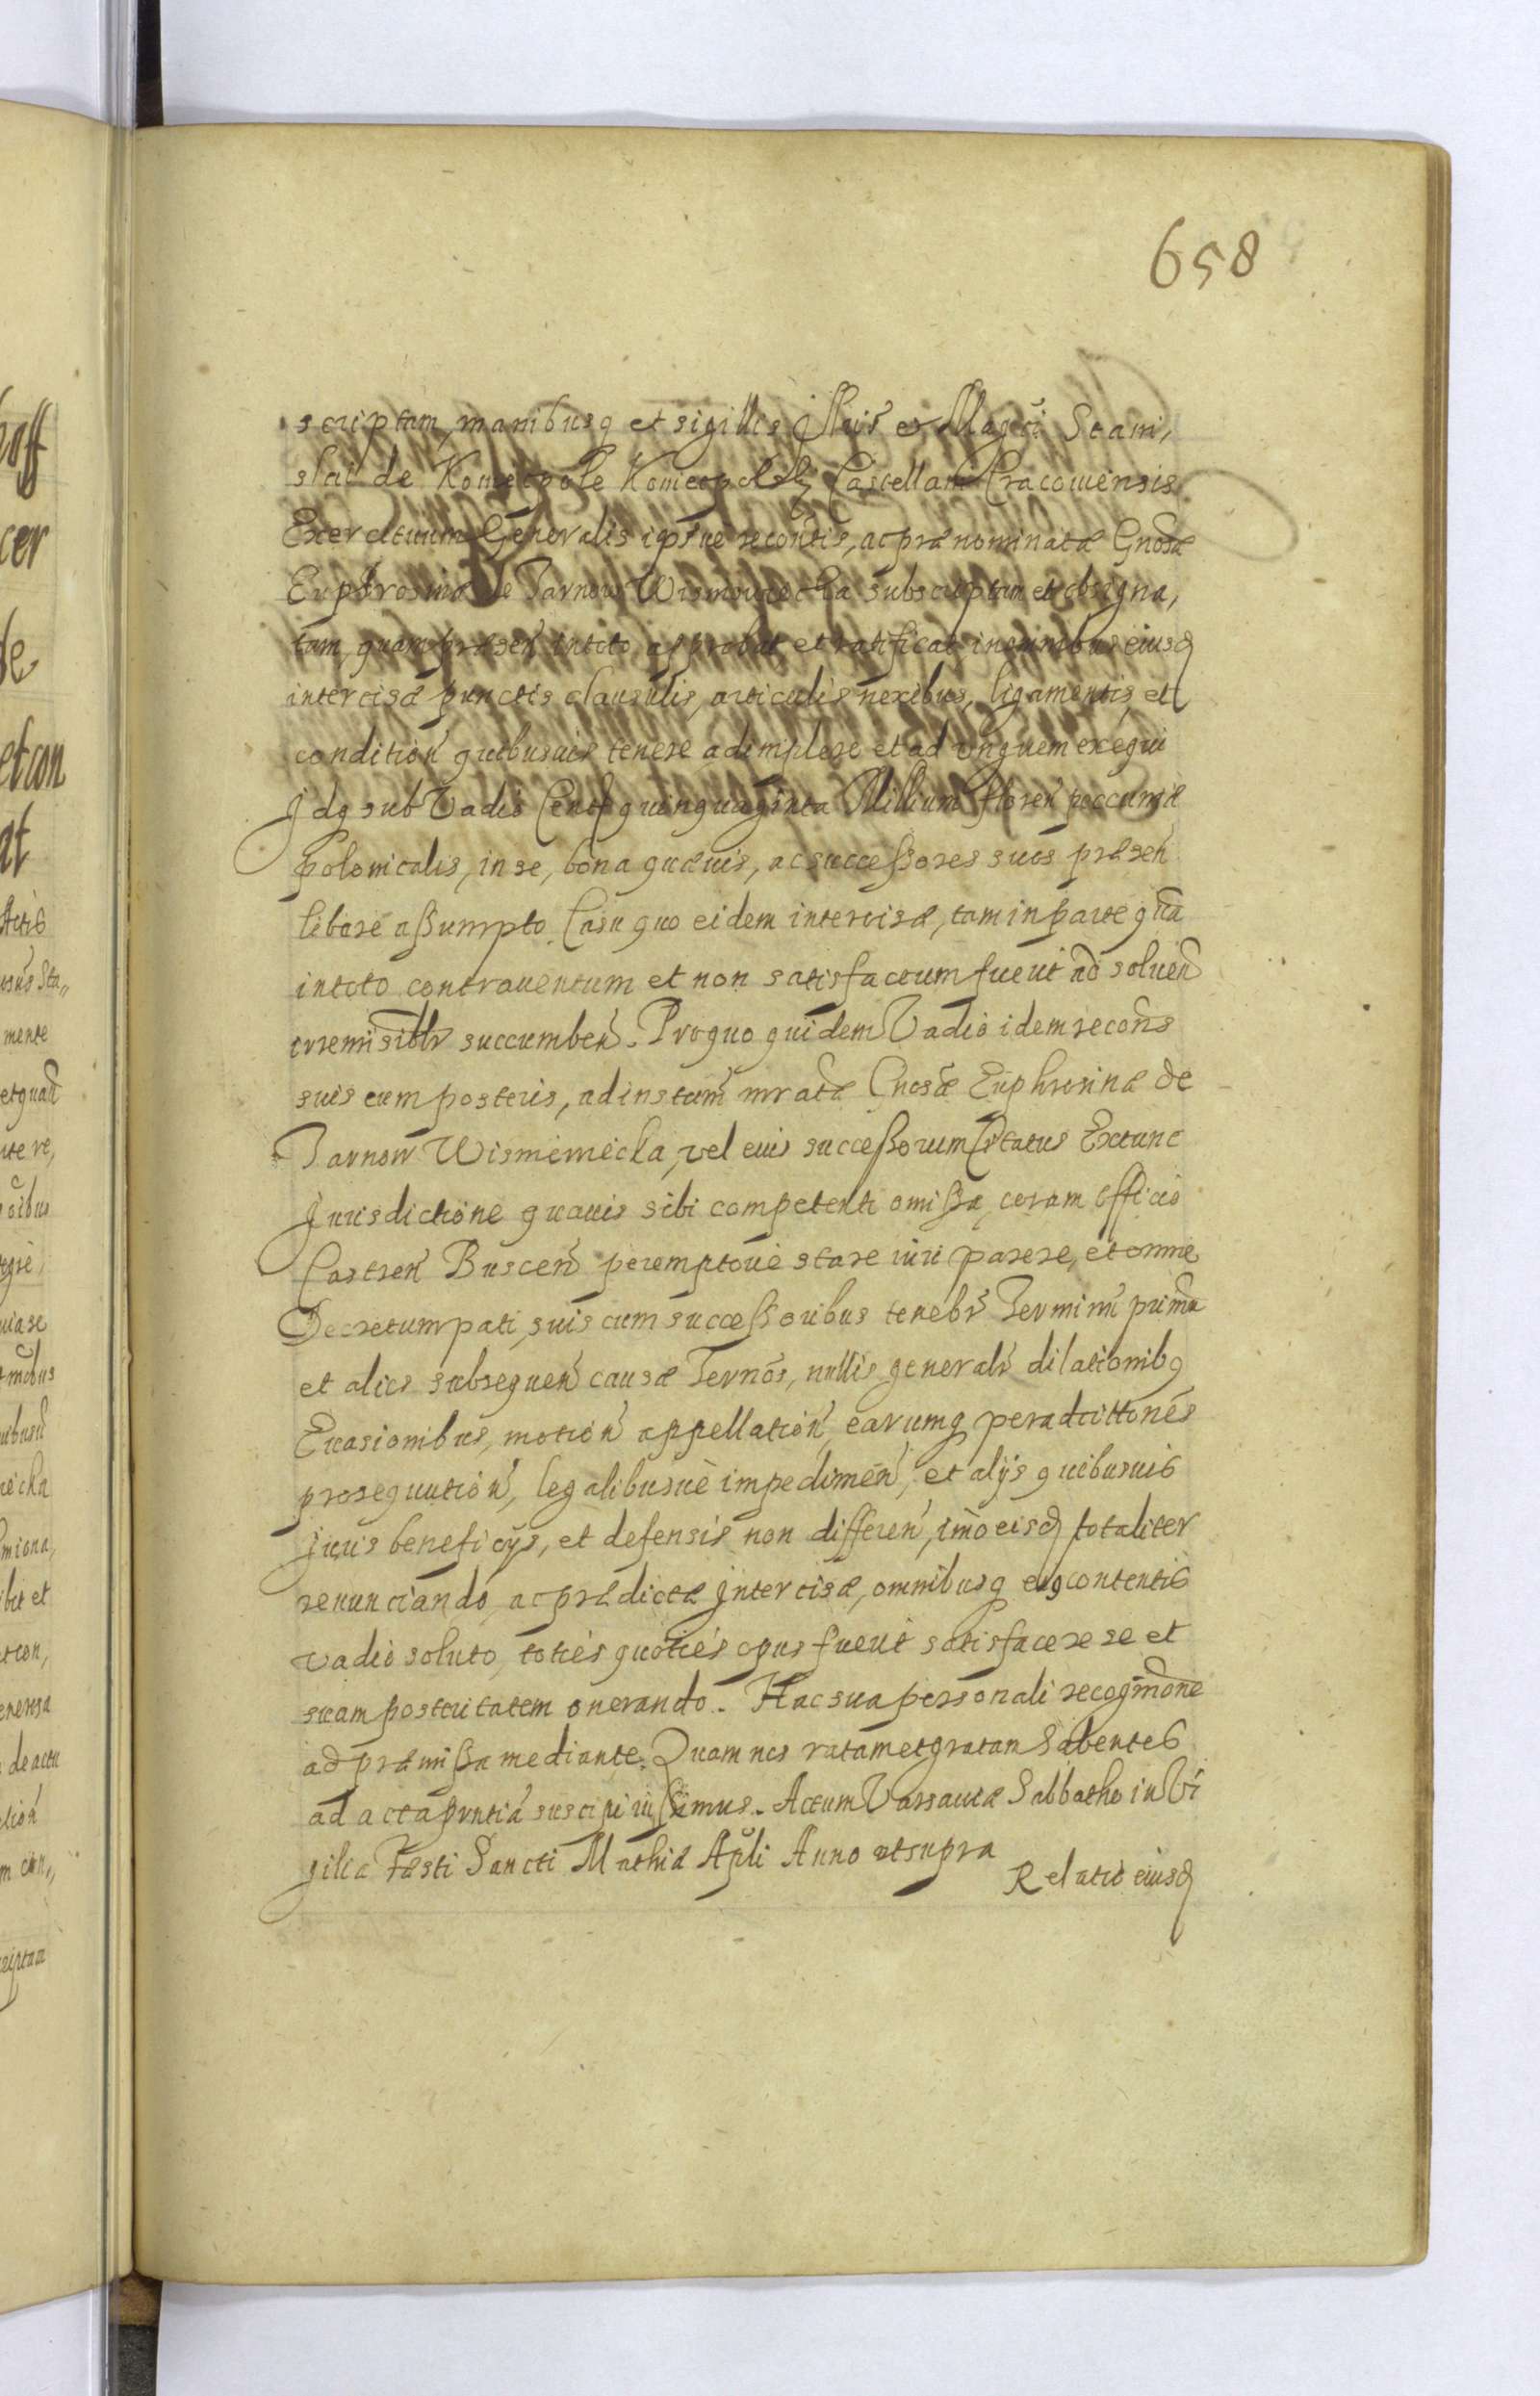 658
scriptam, manibusq et sigillis Illris et Magci Stani,
slai de Koniecpole Koniecpolski Castellani Cracoviensis
Exercituum Generalis ipsiue recontis, ac prænominatæ Gnosæ
Euphrosinæ de Tarnow Wismowiecka subscriptam et obsigna,
tam, quam præsen in toto approbat et ratificat in omnibus eiusd
intercisæ punctis clausulis, articulis nexibus, ligamentis et
condition quibusuis tenere adimplere et ad vnguem exequi
Idq sub Vadio Cent quinquaginta Millium floren peccuniæ
polonicalis, in se, bona quæuis, ac successores suos præsen
libere assumpto. Casu quo eidem intercisæ, tam in parte qua
in toto contrauentum et non satisfactum fuerit ad soluen
irremisiblr succumben. Pro quo quidem Vadio idem recons
suis cum posteris, ad instam mratæ Gnosæ Euphrosinæ de
Tarnow Wismiewiecka, vel eius successorum Citatus Extunc
Jurisdictione quauis sibi competenti omissa, coram officio
Castren Buscen peremptorie stare iuri parere, et omne
Decretum pati, suis cum successoribus tenebr Terminu primu
et alios subsequen causæ Ternos, nullis generalr dilationibq
Euasionibus, motion appellation, earumq peradcittones
prosequution, legalibusue impedimen, et alijs quibusuis
Juris beneficijs, et defensis non differen, imo eisd totaliter
renunciando, ac prædictæ Intercisæ, omnibusq eiq contentis
vadio soluto, toties quoties opus fuerit satisfacere se et
suam posteritatem onerando. Hac sua personali recogmone
ad præmissa mediante. Quam nos ratam et gratam habentes
ad acta pnntia suscipi iussimus. Actum Varsauiæ Sabbatho in Vi
gilia Festi Sancti Mathiæ Apli Anno ut supra
Relatio eiusd